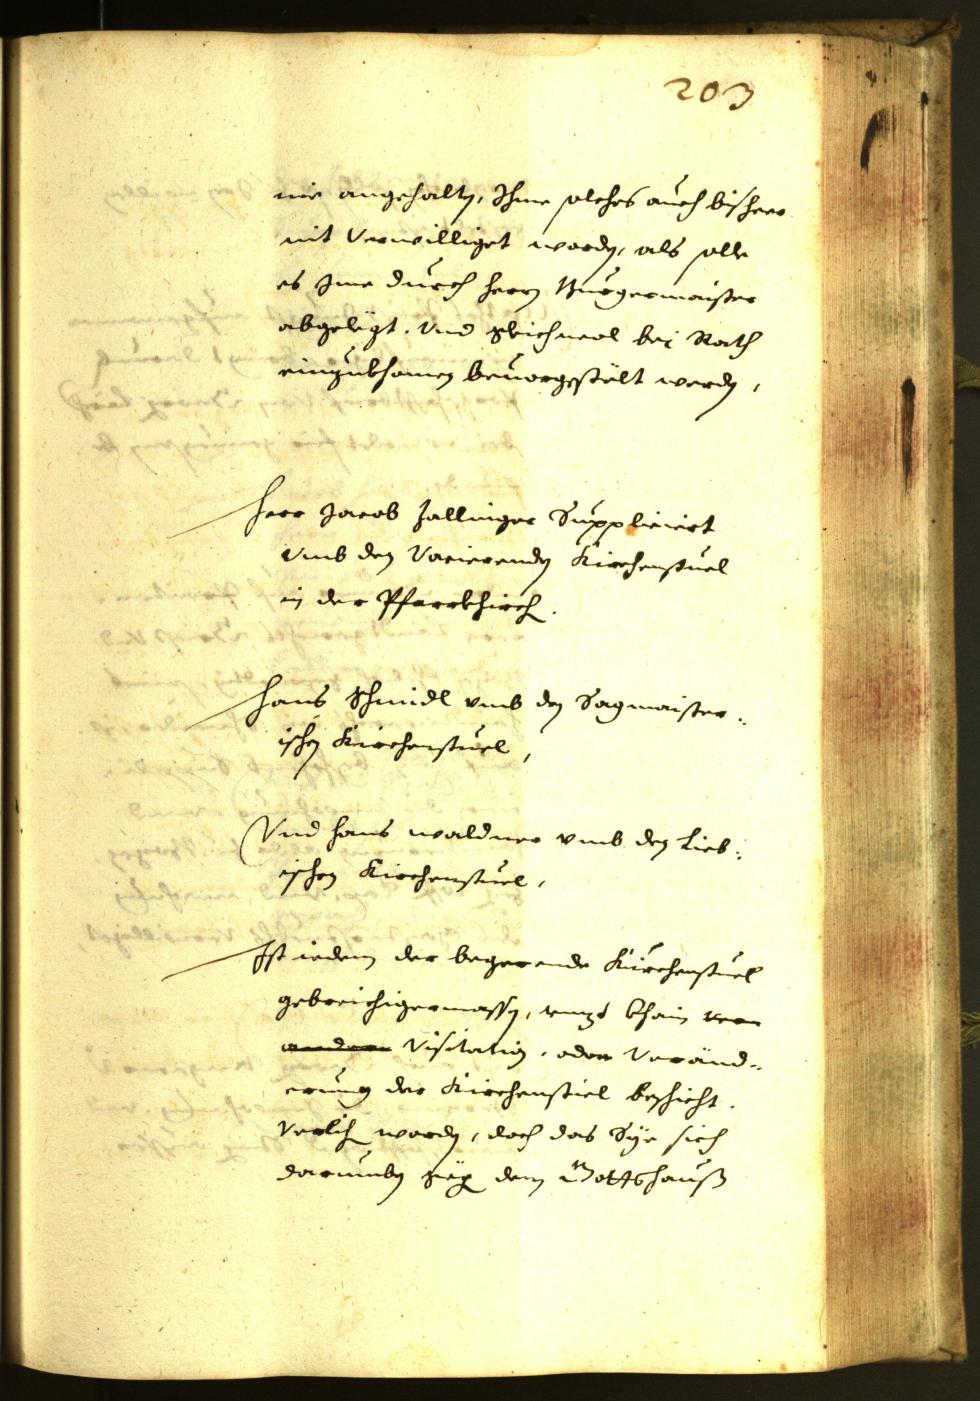 203
nie angehalten, Ihme solches auch bisheer
nit Verwilliget worden, als solle
es Ime durch herrn Burgermaister
abgelegt. Und gleichwol bei Rath
einzukhomen bevorgestelt werden,
Herr Jacob Zallinger Supplicirt
Umb den Vacierenden Kirchenstuel
in der Pfarrkhirch.
Hans Schmidl umb den Sagmaister:
ischen Kirchenstuel,
Und hans waldner umb den Lieb:
ischen Kirchenstuel,
Ist iedem der begerende Kürchenstuel
gebreichigermassen, unzt khain
Visitation, oder Veränd:
erung der Kirchenstiel beschicht.
Verlihen worden, doch das Sye sich
darumben gegen dem Gottshauß